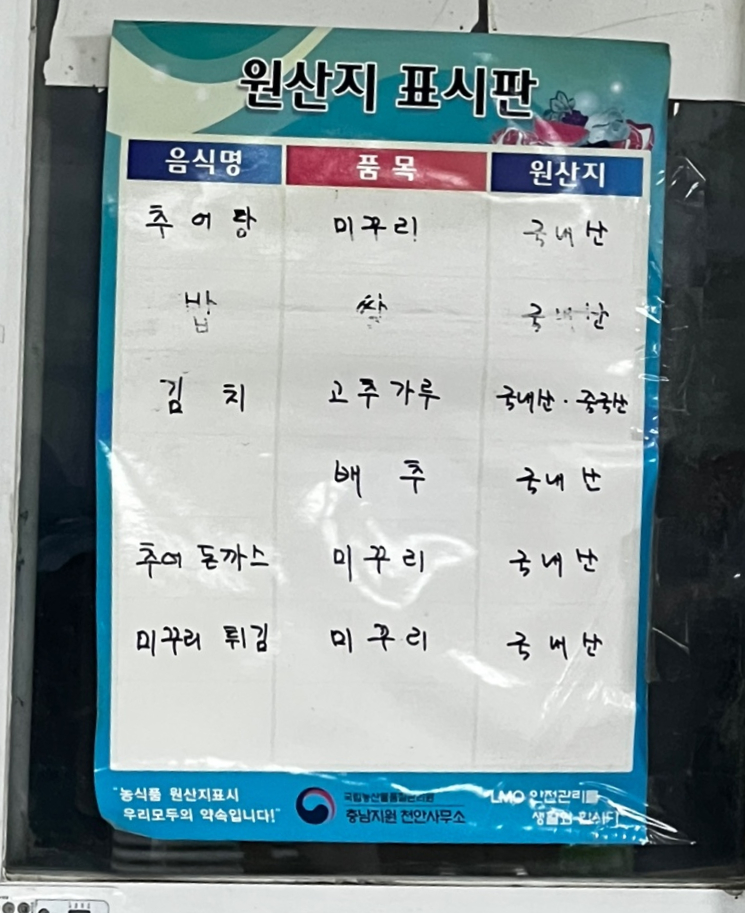 원산지 표시판
음식명 품목 원산지
추어탕 미꾸리 국내산
밥 쌀 국내산
김치 고추가루 국내산·중국산
배추 국내산
추어 돈까스 미꾸리 국내산
미꾸리 튀김 미꾸리 국내산
"농식품 원산지표시
우리모두의 약속입니다!"
국립농산물품질관리원
충남지원 천안사무소
"LMO 안전관리를